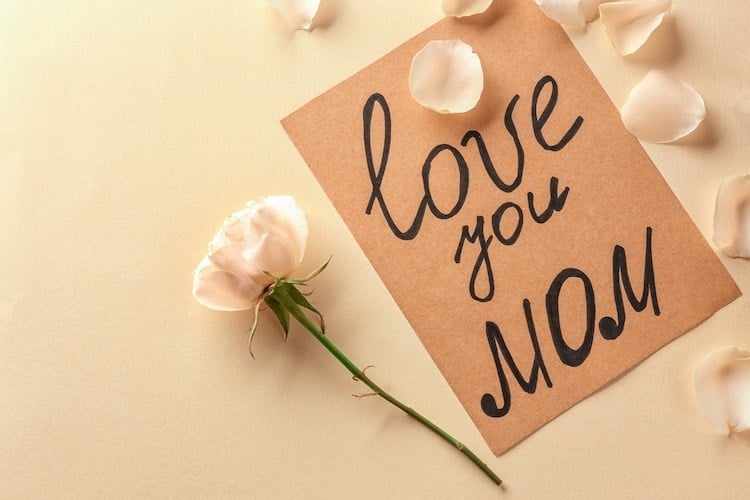 love
you
MOM